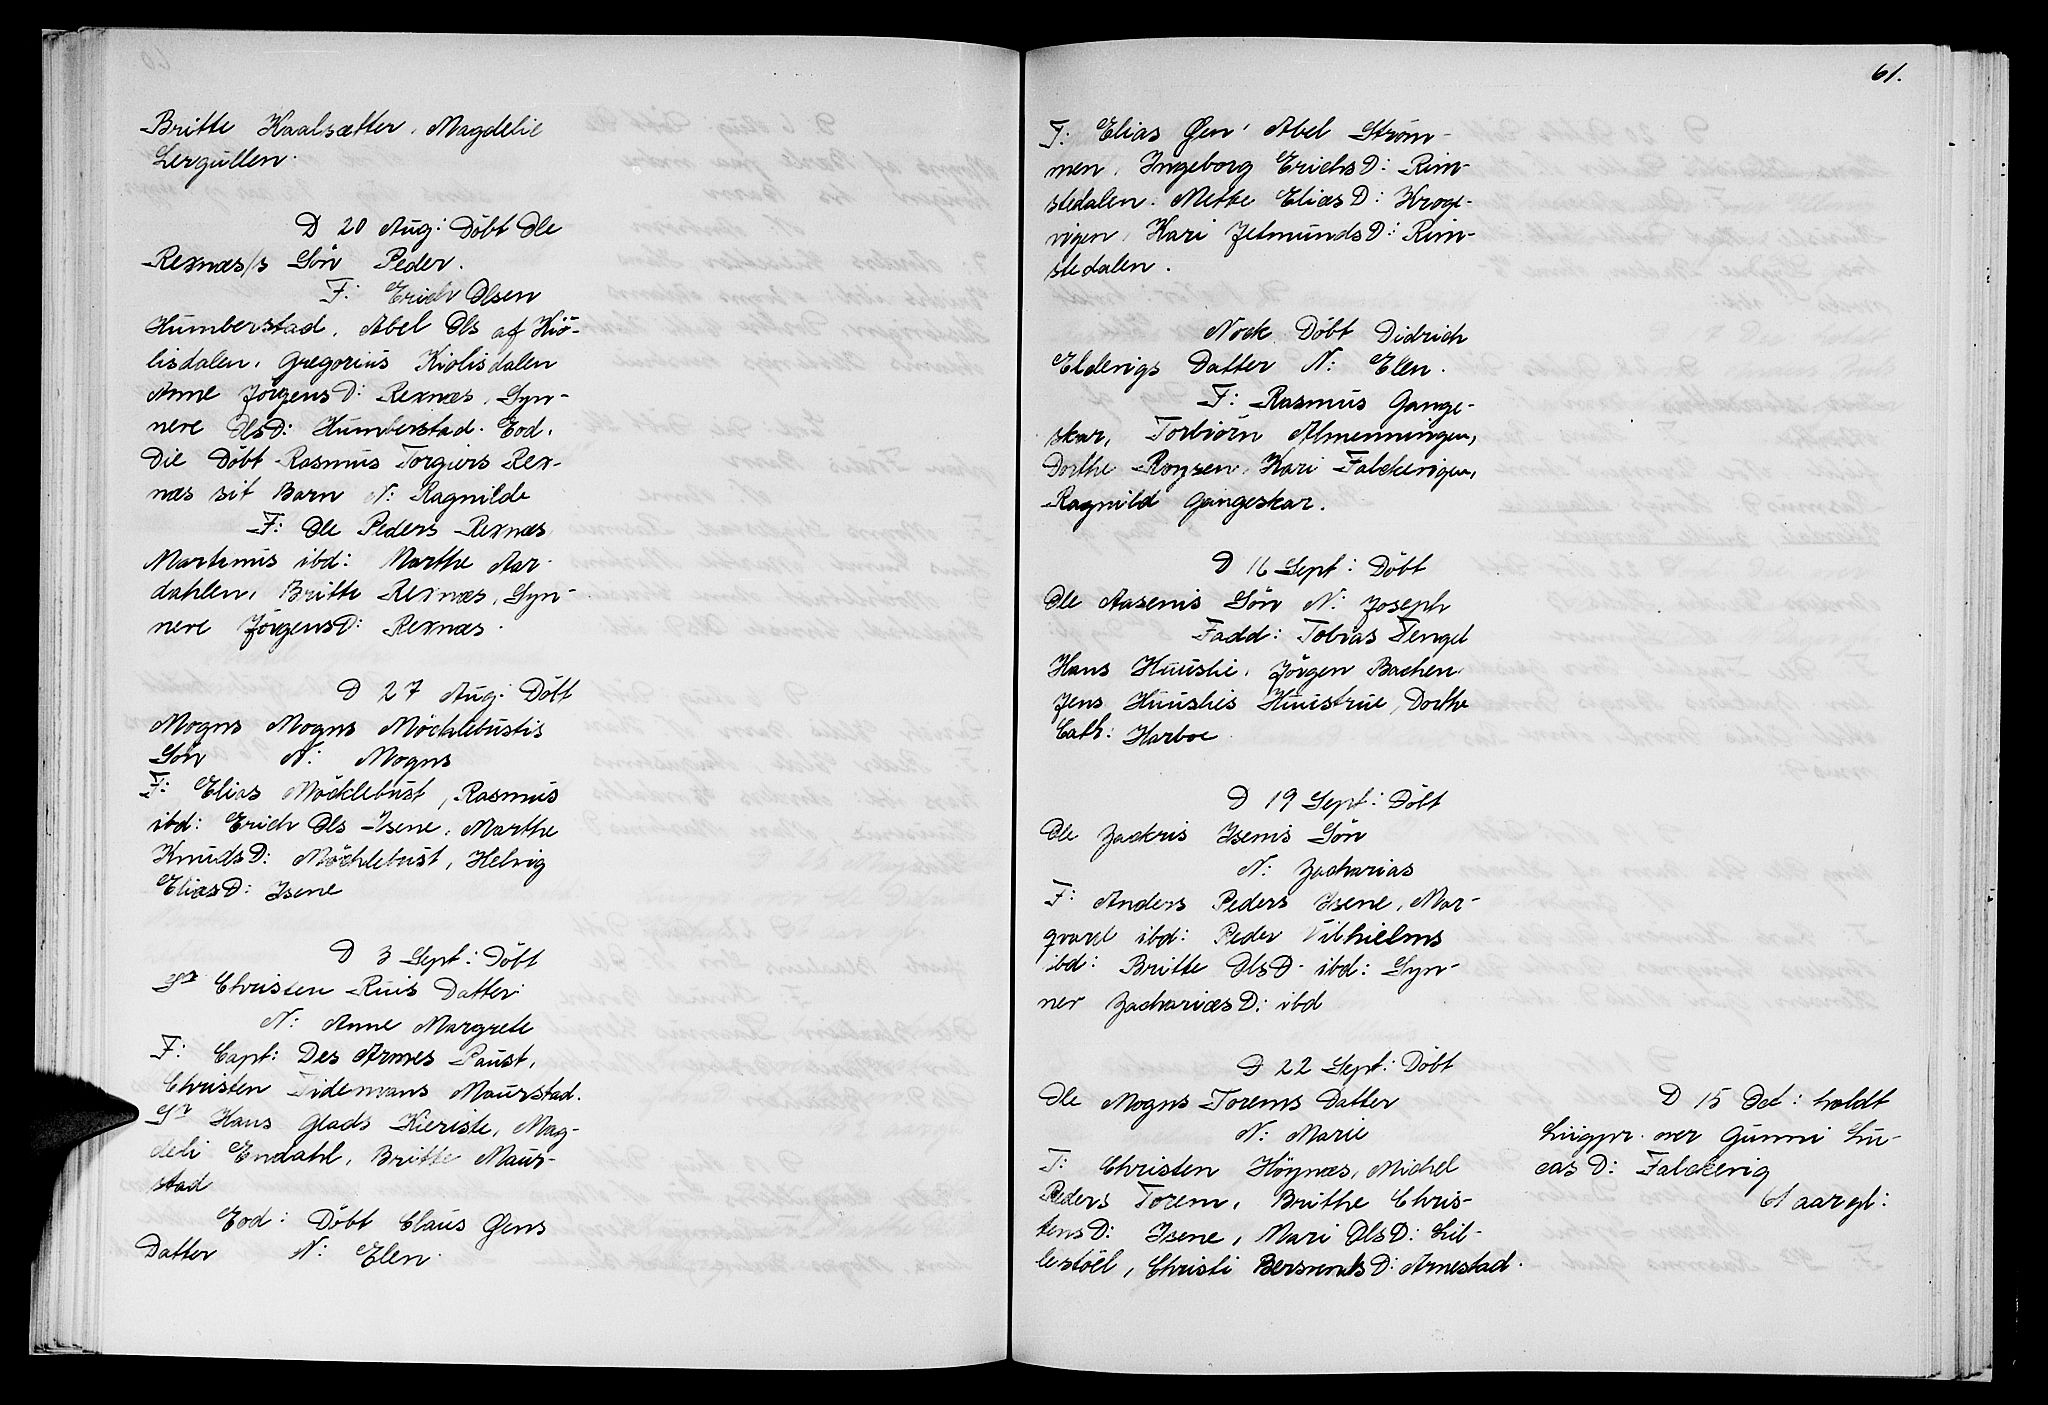 Britte Haalsætter, Magdelie
Lergullen.
D 20 Aug: Döbt Ole
Rexnæs/s Sön Peder.
F: Erich Olsen
Humberstad, Abel Ols af Kiö-
lisdalen, Gregorius Kiolisdalen
Anne JörgensD: Rexnæs, Syn-
nere OlsD: Humberstad. Eod.
Die Döbt Rasmus Torgiers Rex-
næs sit Barn N: Ragnilde
F: Ole Peders Rexnæs
Martinus ibd: Marthe Aar-
dahlen, Britte Rexnæs, Syn-
nere JörgensD: Rexnæs.
D 27 Aug: Döbt
Mogns Mogns Möchlebustis
Sön N: Mogns
F: Elias Möcklebust, Rasmus
ibd: Erich Ols Isene, Marthe
KnudsD: Möchlebust, Helvig
EliasD: Isene
D 3 Sept: Döbt
Sr Christen Ruis Datter
N: Anne Margrete
F: Capt: Des Armes Paust,
Christen Tidemans Maurstad.
Sr Hans Glads Kieriste, Mag-
deli Endahl, Britte Maur-
stad
Eod: Döbt Claus Øens
Datter N: Elen.
61.
F: Elias Øen, Abel Ström-
men, Ingeborg ErichsD: Rim-
stedalen. Mette EliasD: Kroge-
vigen, Kari JetmundsD: Rim-
stedalen.
Nock Döbt Didrich
Eldevigs Datter N: Elen.
F: Rasmus Gange-
skar, Torbiörn Almenningen,
Dorthe Röysen, Kari Falckevigen,
Ragnild Gangeskar.
D 16 Sept: Döbt
Ole Aasenis Sön N: Joseph
Fadd: Tobias Tengel
Hans Huuslie, Jörgen Bachen
Jens Huuslies Huustrue, Dorthe
Cath: Harboe
D 19 Sept: Döbt
Ole Zackris Isenis Sön
N: Zacharias
F: Anders Peders Isene, Mar-
qvard ibd: Peder Vilhielms
ibd: Britte OlsD: ibd: Syn-
ner ZachariæsD: ibd
D 22 Sept: Döbt
Ole Mogns Torems Datter
N: Marie
F: Christen Höynæs, Michel
Peders Torem, Brithe Chris-
tensD: Isene, Mari OlsD: Lil-
lestöel, Christi D: Arnestad.
D 15 Oct: holdt
Liigpr. over Gunni Lu-
casD: Falckevig
61 aar gl: